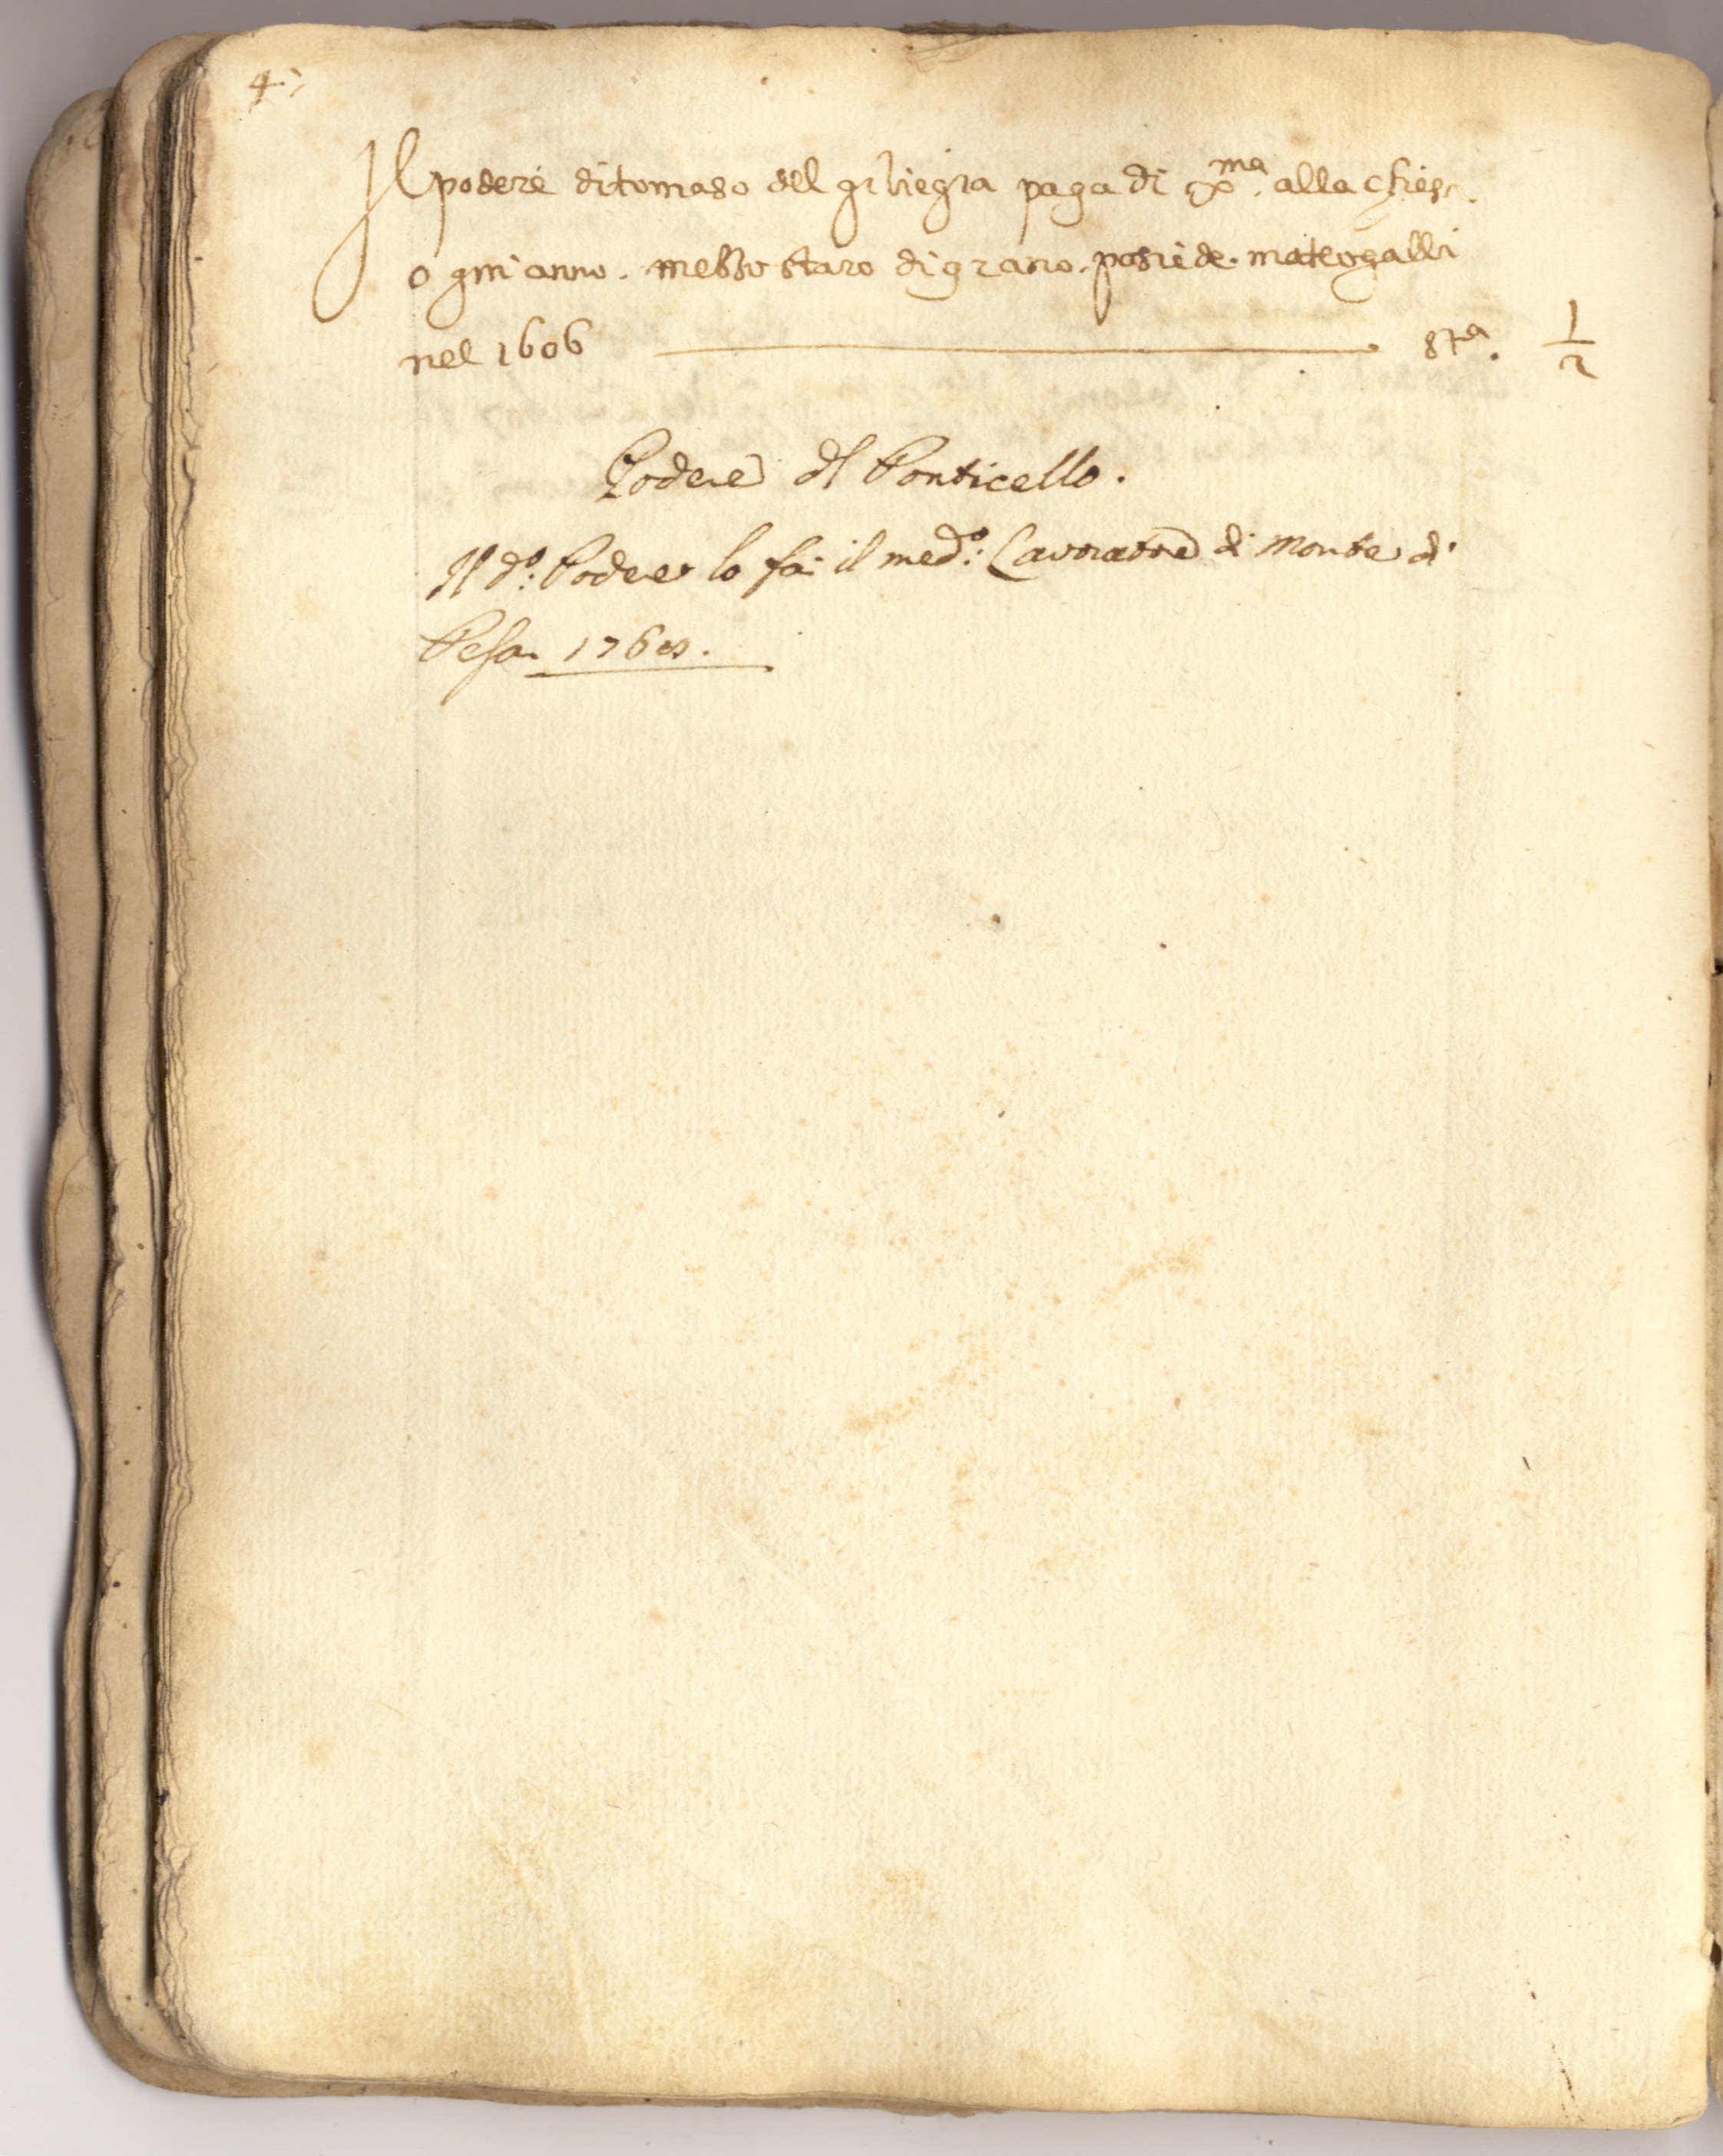 4
Il podere di tomaso del giliegia paga di Xma. alla chiesa.
ogni anno. messo staro di grano. posiede. mateo galli
nel 1606 sta. 1/2
Podere dl Ponticello.
Il do: Podere lo fà il medo: Lavoratore di Monte di
Pesa 1760.